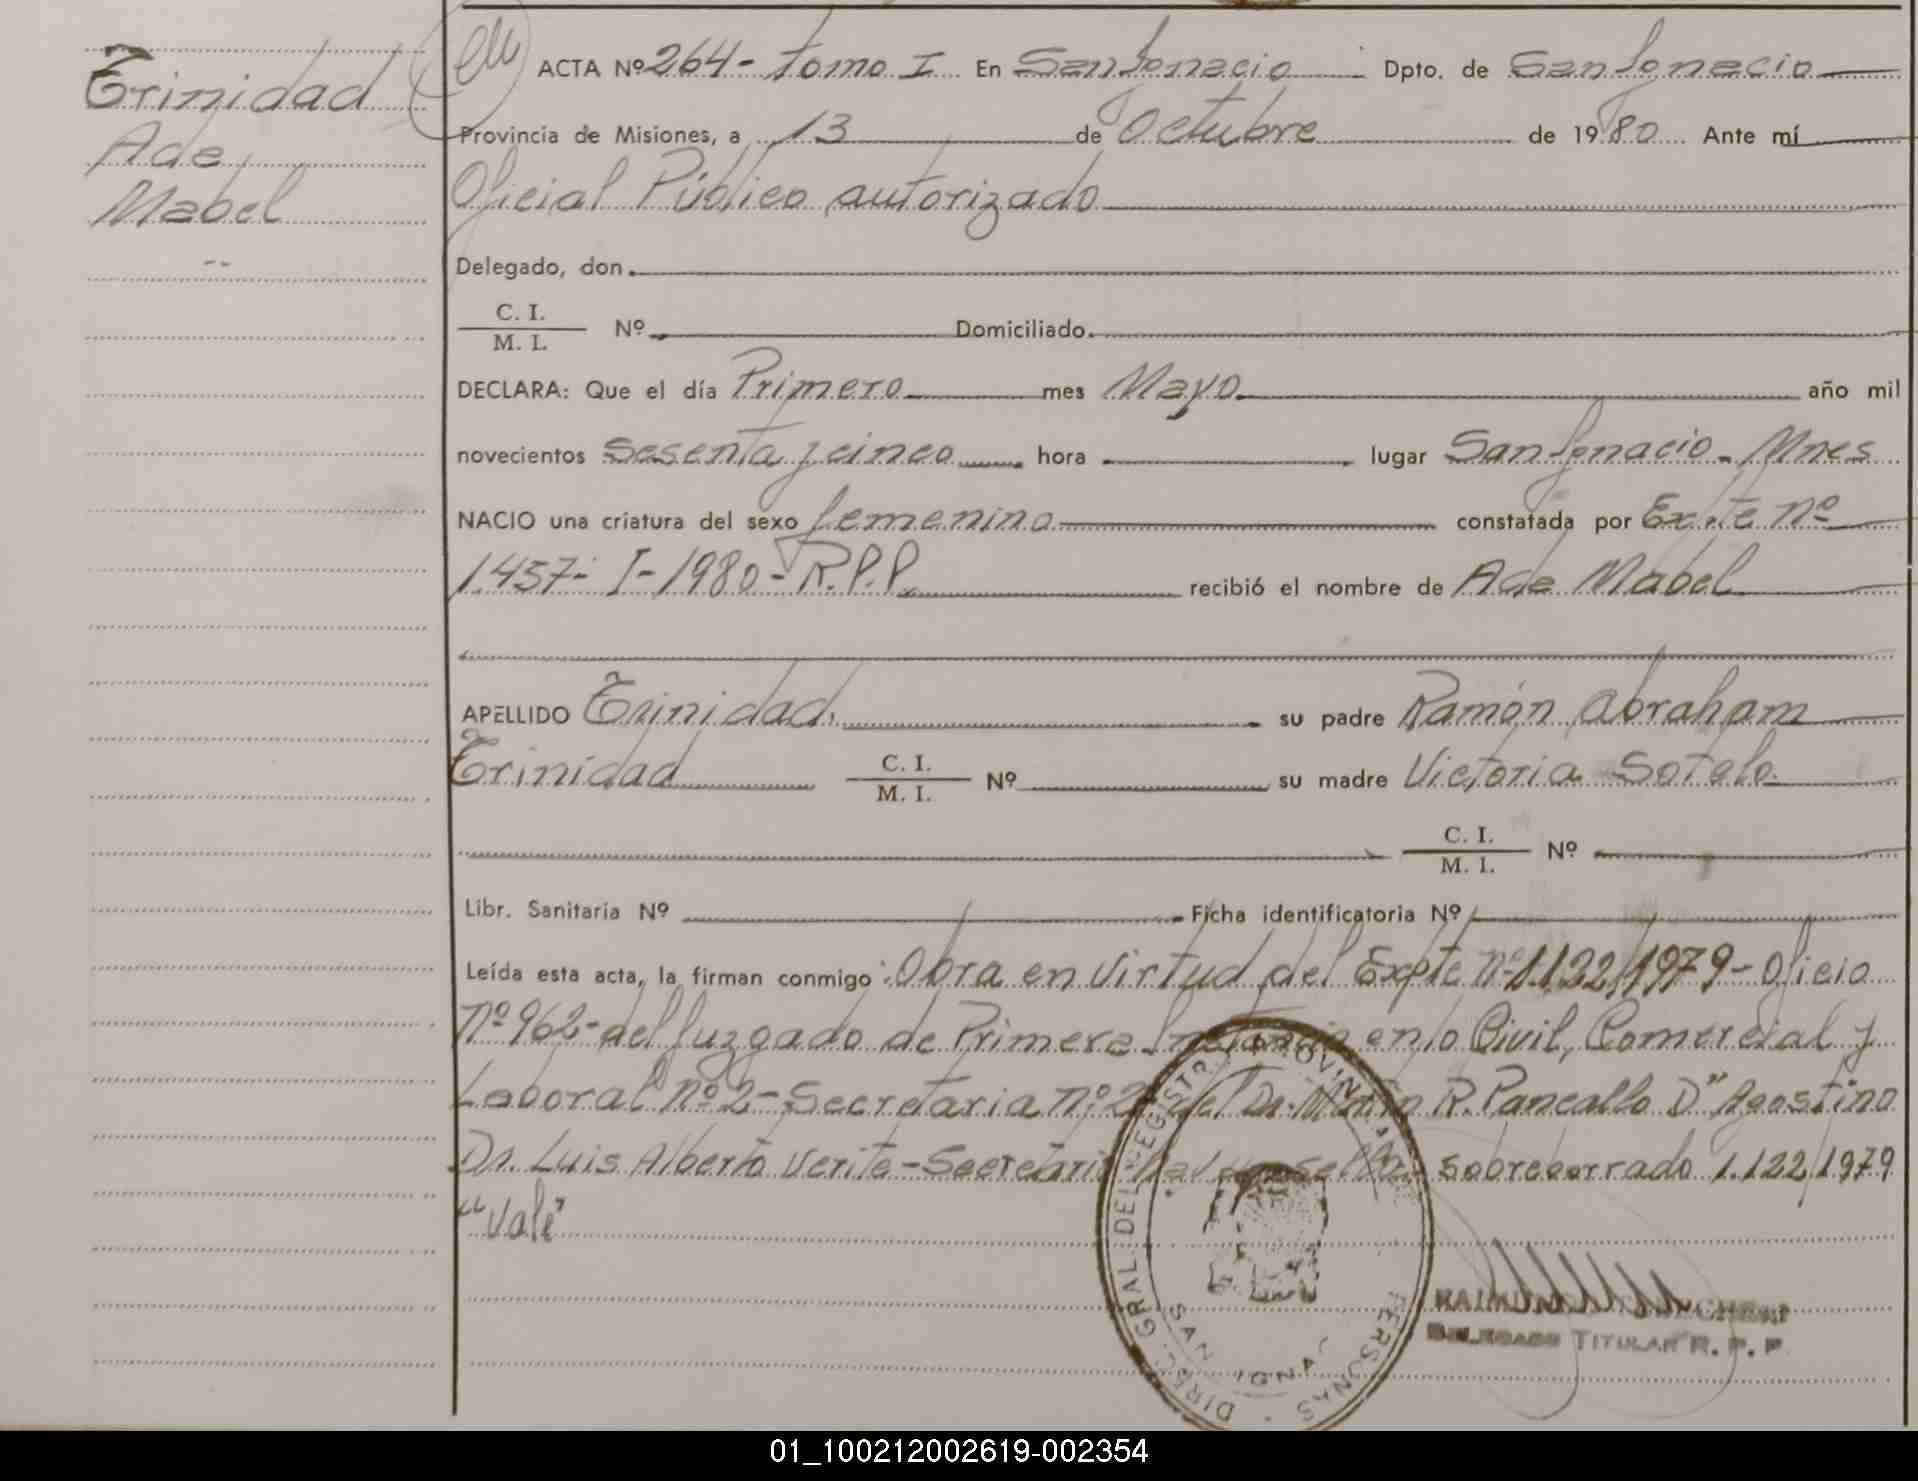 Trinidad
Ade
Mabel
--
ACTA Nº 264- tomo I En San Ignacio Dpto. de San Ignacio
Provincia de Misiones, a 13 de Octubre de 1980 Ante mí
Oficial Público autorizado
Delegado, don
C. I.
M. I. Nº Domiciliado
DECLARA: Que el día Primero mes Mayo año mil
novecientos Sesenta y cinco hora lugar San Ignacio - Mnes
NACIO una criatura del sexo femenino constatada por Expte nº
1.457- I-1980- R.P.P. recibió el nombre de Ade Mabel
APELLIDO Trinidad su padre Ramón Abraham
Trinidad C. I. M. I. Nº su madre Victoria Sotelo
C. I.
M. I. Nº
Libr. Sanitaria Nº Ficha identificatoria Nº
Leída esta acta, la firman conmigo: Obra en virtud del Expte Nº 1.122/1979- Oficio
Nº 962- del Juzgado de Primera Instancia en lo Civil, Comercial y
Laboral nº 2- Secretaria nº 2- del Dr. Martin R. Pancallo D" Agostino
Dr. Luis Alberto Verite- Secretario sobreborrado 1.122/1979
"Vale"
DIREC. GRAL. DEL REGISTRO PROVINCIAL PERSONAS
SAN IGNAC
DELEGADO TITULAR R. P. P.
01_100212002619-002354